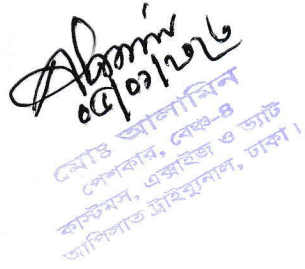 ০৫/০১/২০২৩
মোঃ আলামিন
পেশকার, বেঞ্চ-৪
কাস্টমস, এক্সাইজ ও ভ্যাট
আপিলাত ট্রাইব্যুনাল, ঢাকা।